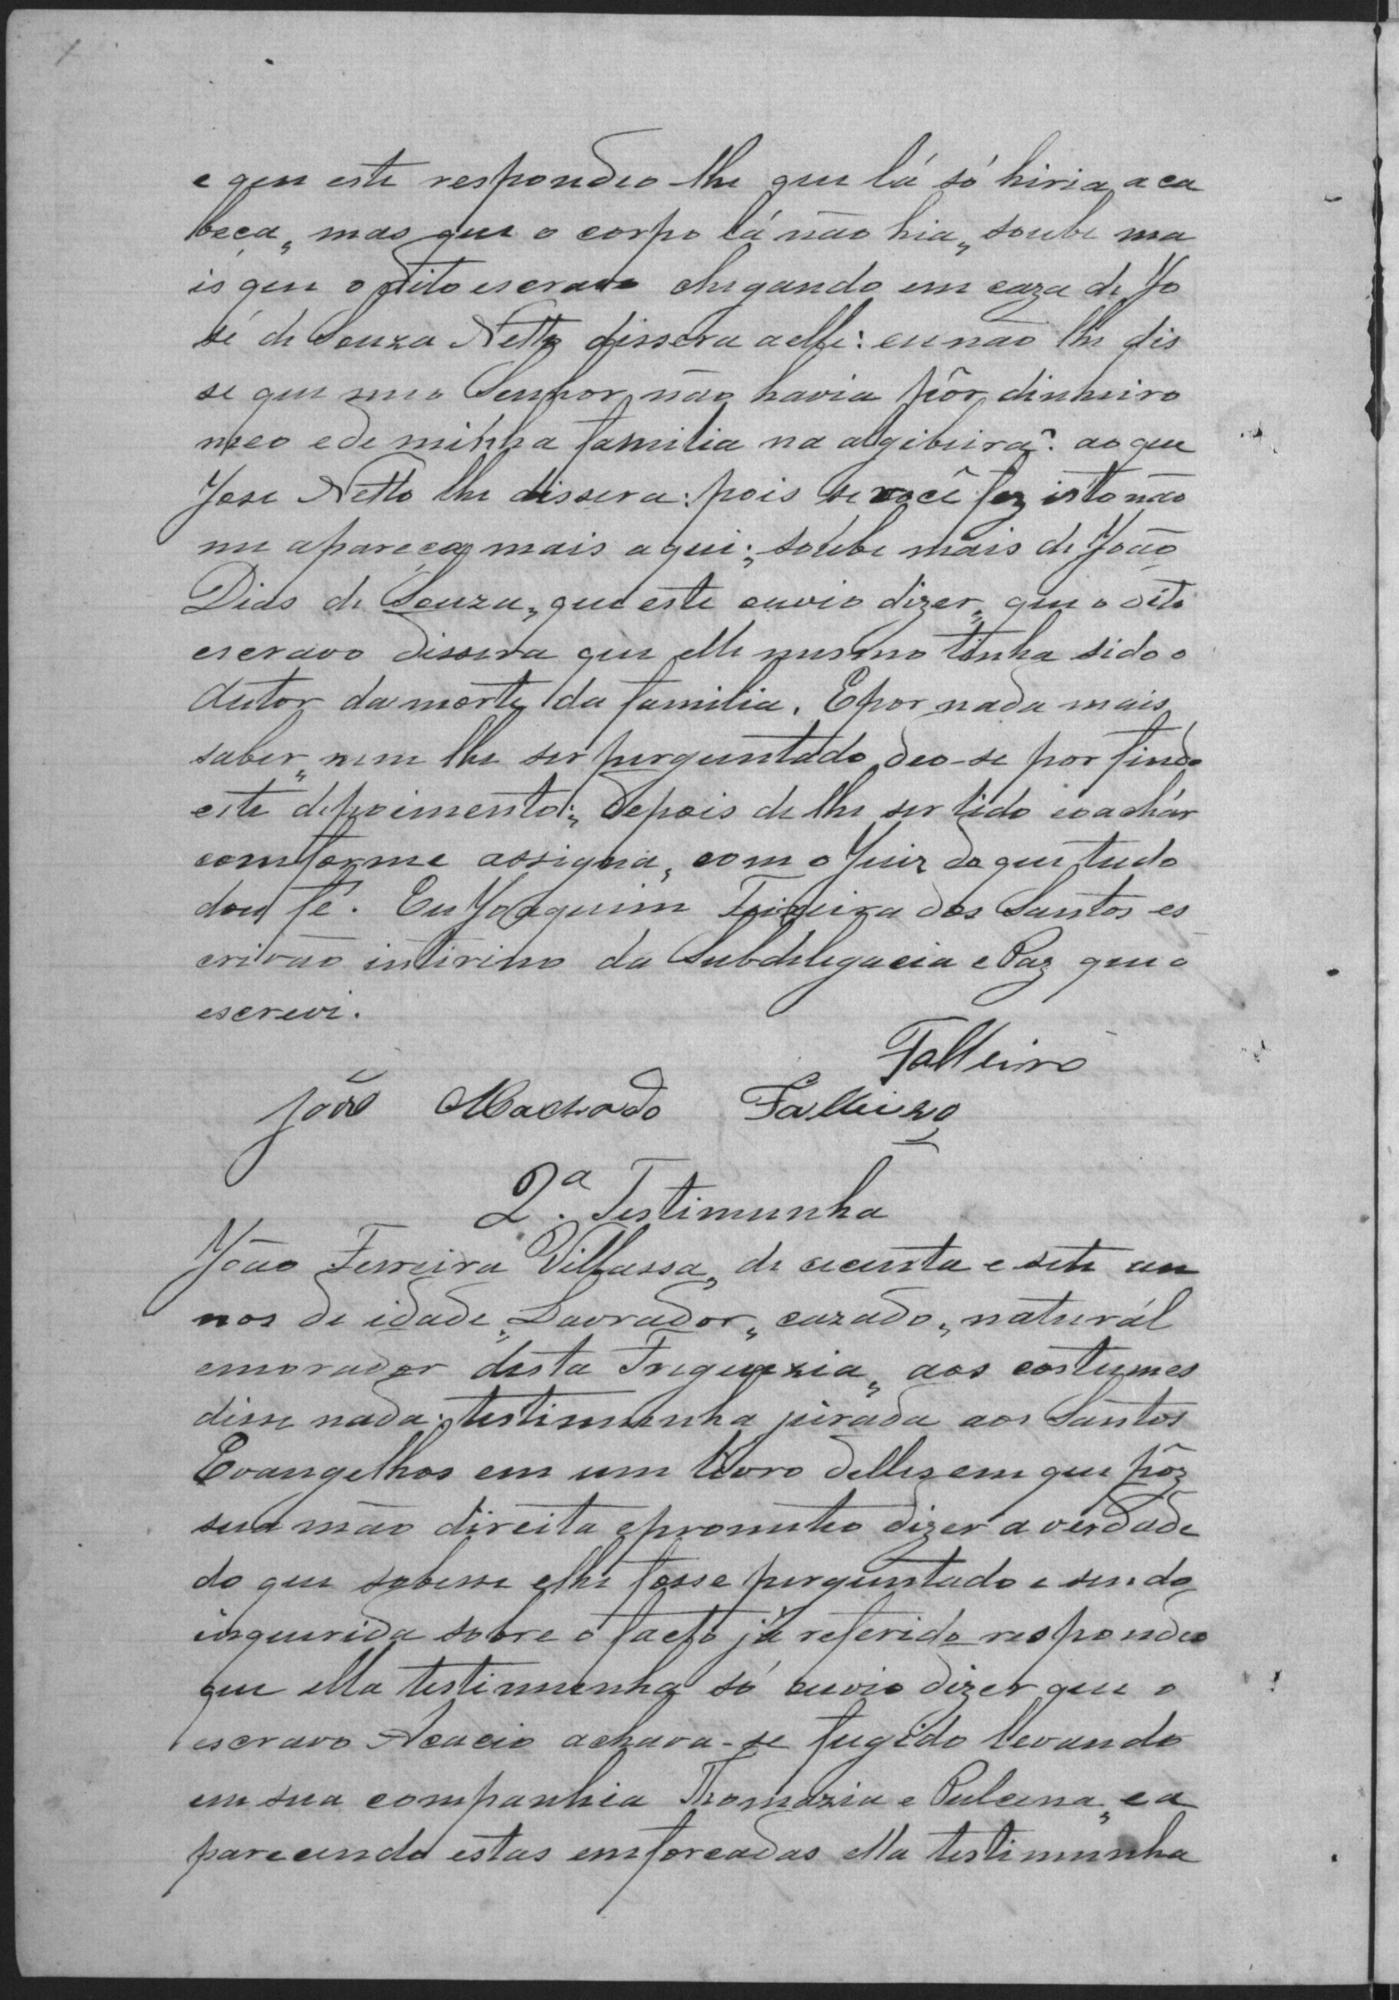 e que este respondeo-lhe que lá só hiria a ca
beça, mas que o corpo lá não hia, soube ma
is que o dito escravo chegando em caza de Jo
sé de Souza Netto dissera a elle: eu não lhe dis
se que meo Senhor não havia pôr dinheiro
meo e de minha familia na algibeira? ao que
Jose Netto lhe dissera: pois se você fez isto não
me apareça mais aqui; soube mais de João
Dias de Souza, que este ouvio dizer, que o dito
escravo dissera que elle mesmo tinha sido o
Autor da morte da familia. E por nada mais
saber, nem lhe ser perguntado, deo-se por findo
este depoimento; depois de lhe ser lido e o achár
comforme assigna, com o Juiz do que tudo
dou fé. Eu Joaquim Teixeira dos Santos es
crivão intirino da Subdelegacia e Paz que o
escrevi.
Falleiro
João Machado Falleiro
2.ª Testimunha
João Ferreira Villassa, de cecenta e sete an
nos de idade, Lavrador, cazado, naturál
e morador desta Freguezia, aos costumes
disse nada; testimunha jurada aos Santos
Evangelhos em um livro delles em que pôz
sua mão direita e prometeo dizer a verdade
do que sobesse e lhe fosse perguntado e sendo
inquerida sobre o facto já referido respondeo
que ella testimunha só ouvio dizer que o
escravo Acacio achava-se fugido levando
em sua companhia Thomazia e, e a
parecendo estas emforcadas ella testimunha